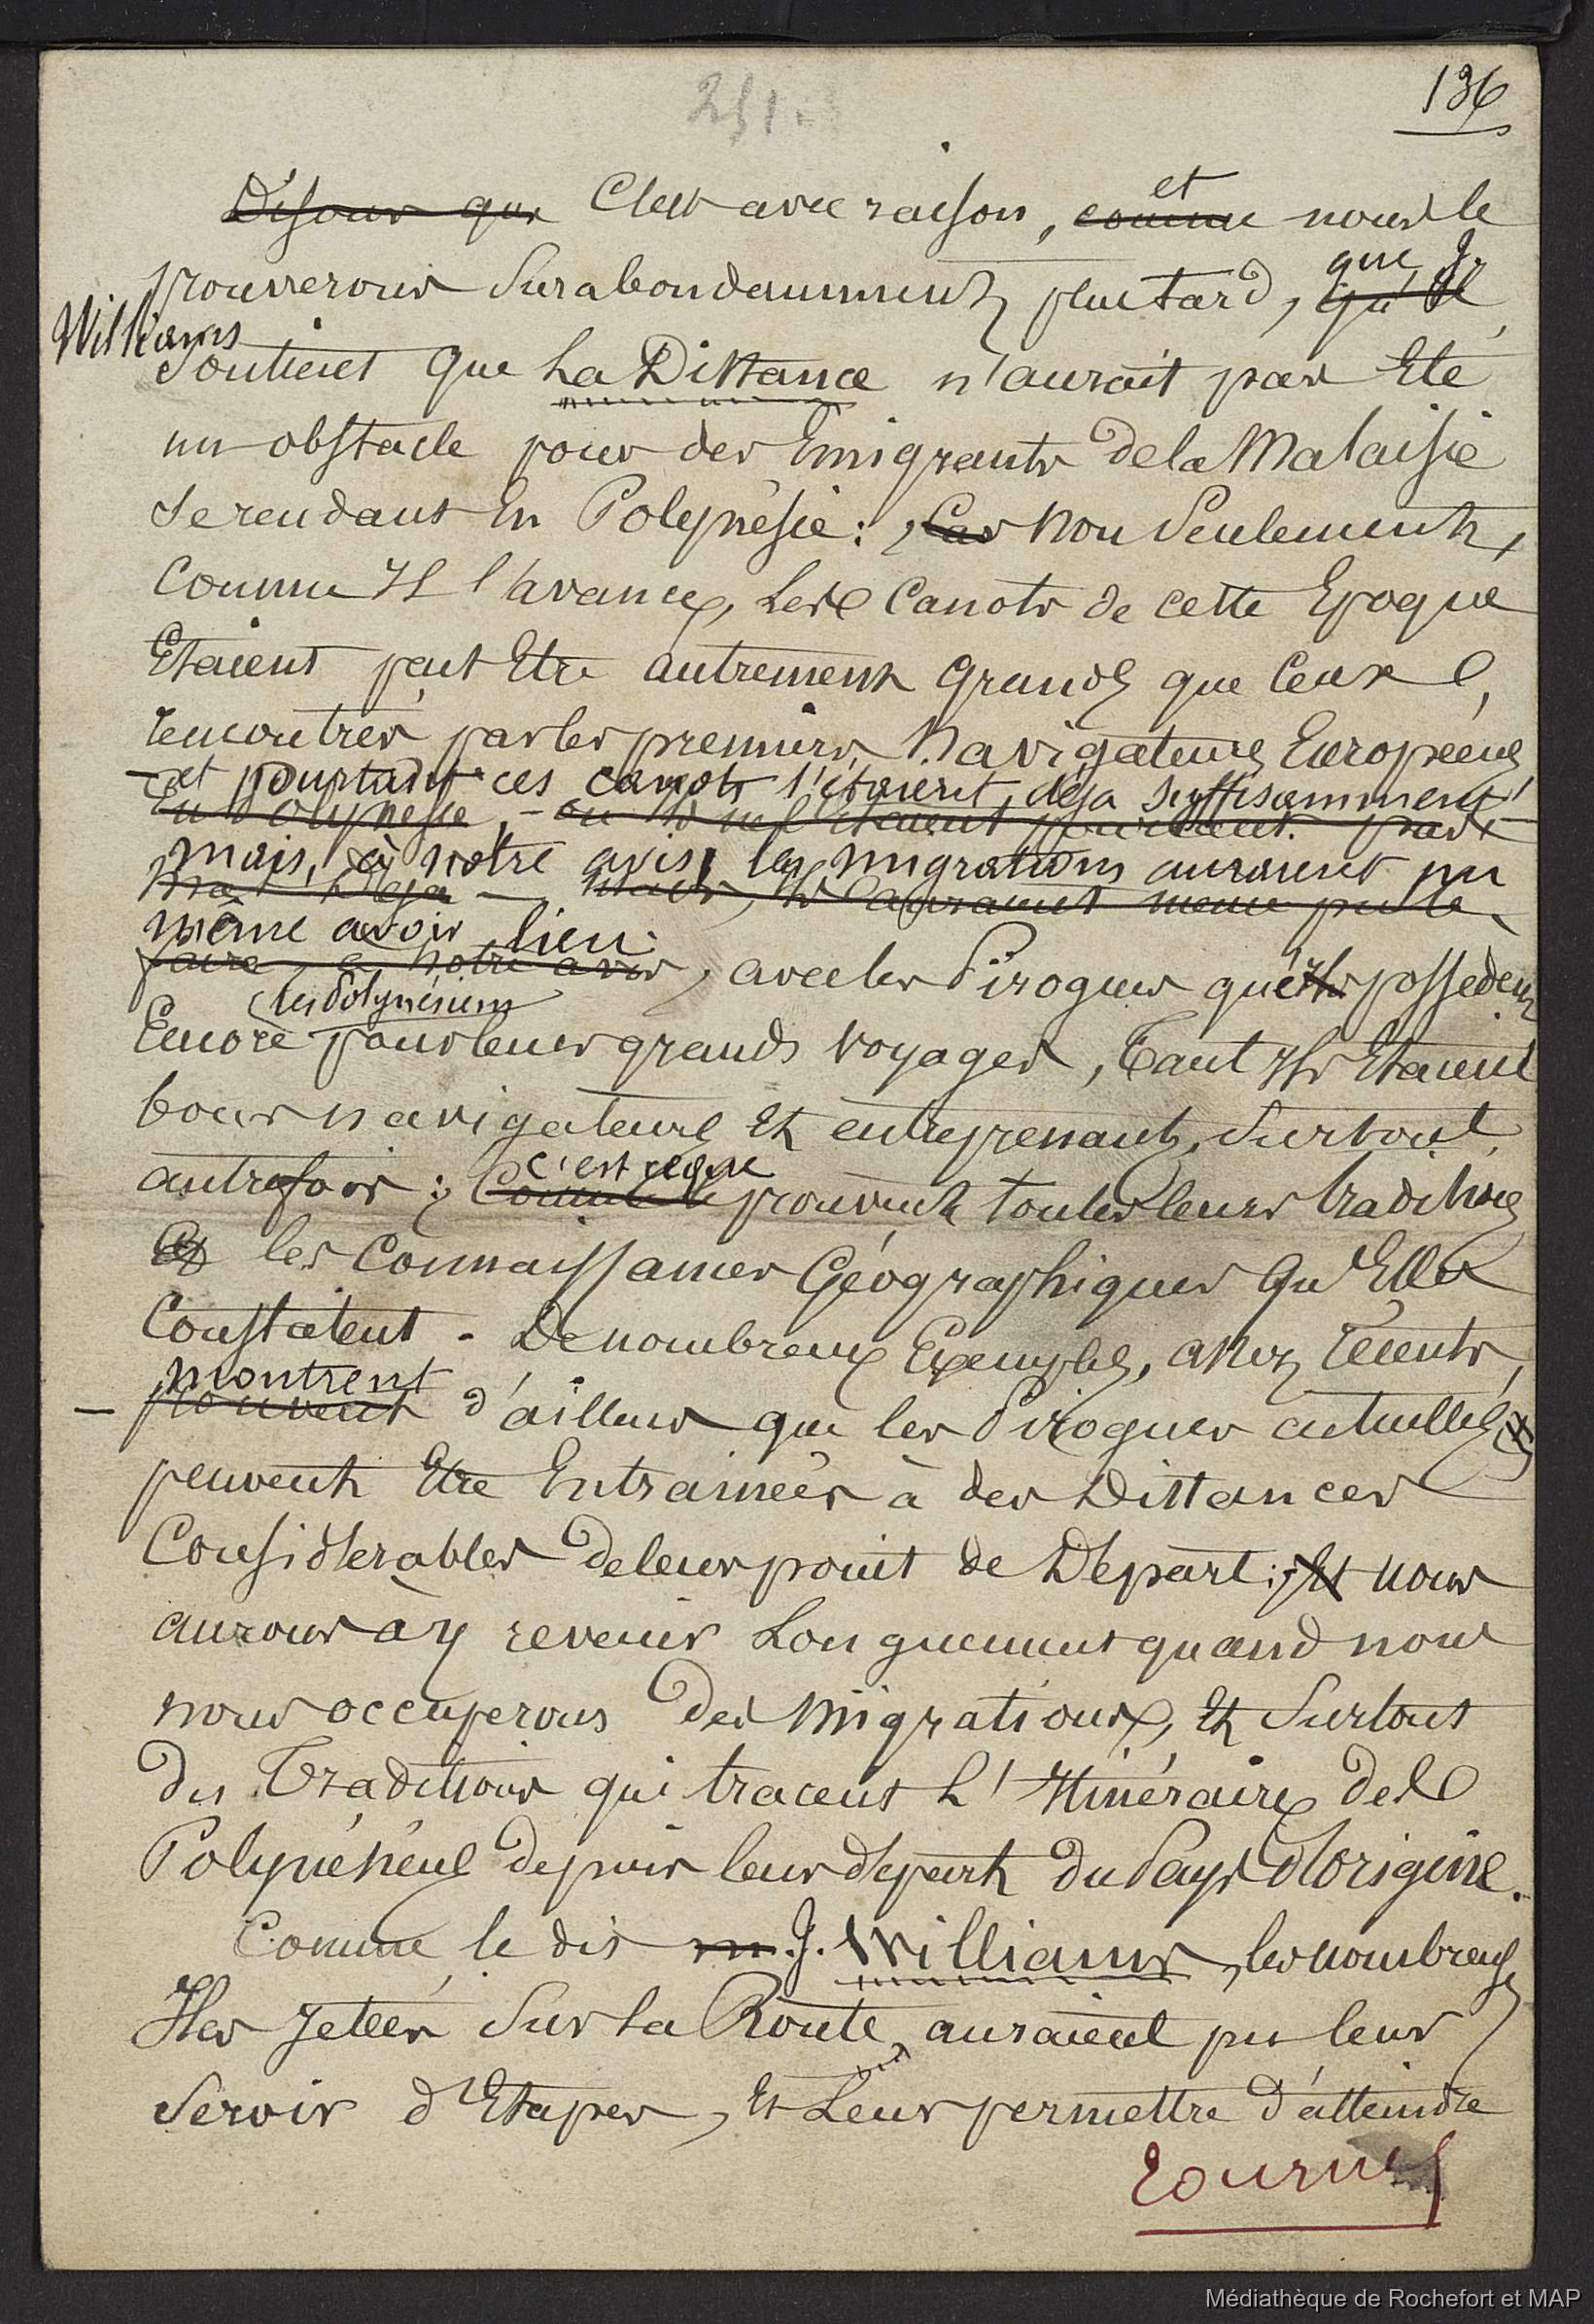 136
251.
Disons que C'est avec raison, comme et nous le
prouverons Surabondamment plus tard, qu'il que J.
Williams
Soutient que La Distance n'aurait pas Eté
un obstacle pour des Emigrants de la Malaisie
se rendant En Polynésie : Car Non Seulement,
Comme Il l'avance, Les Canots de cette Epoque
Etaient peut Etre autrement Grands que Ceux
rencontrés par les premiers Navigateurs Européens
— et pourtant ces canots l'étaient déja suffisamment
En Polynésie, -
mais, à notre avis, les migrations auraient pu
déja — mais, Ils l'auraient meme pu le
même avoir lieu
faire, à notre avis, avec les Pirogues que Ils possedent
les Polynésiens
Encore pour leurs grands voyages, Tant Ils Etaient
bons navigateurs Et entreprenants, Surtout
autrefois : Comme le c'est ce que prouvent toutes leurs traditions
Et les Connaissances Géographiques qu'Elles
Constatent. De nombreux Exemples, assez récents,
montrent
— prouvent d'ailleurs que les Pirogues actuelles
peuvent Etre Entrainées à des Distances
Considérables de leur point de Départ ; Et nous
aurons à y revenir Longuement quand nous
nous occuperons des Migrations, Et Surtout
des Traditions qui tracent L'Itinéraire des
Polynésiens depuis leur départ du Pays d'origine.
Comme le dit M. J. Williams, les nombreuses
Iles Jetées Sur la Route, auraient pu leur
Servir d'Etapes, Et Leur permettre d'atteindre
tournez
Médiathèque de Rochefort et MAP